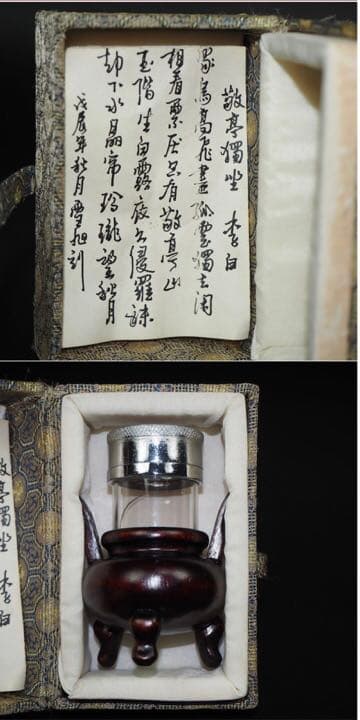 敬亭獨坐 李白
眾鳥高飛盡孤雲獨去闲
相看 厌只有敬亭山
玉階生白露夜久侵羅襪
却下水晶帘玲瓏望秋月
戊辰年秋月 旭刻
敬亭獨坐 李白